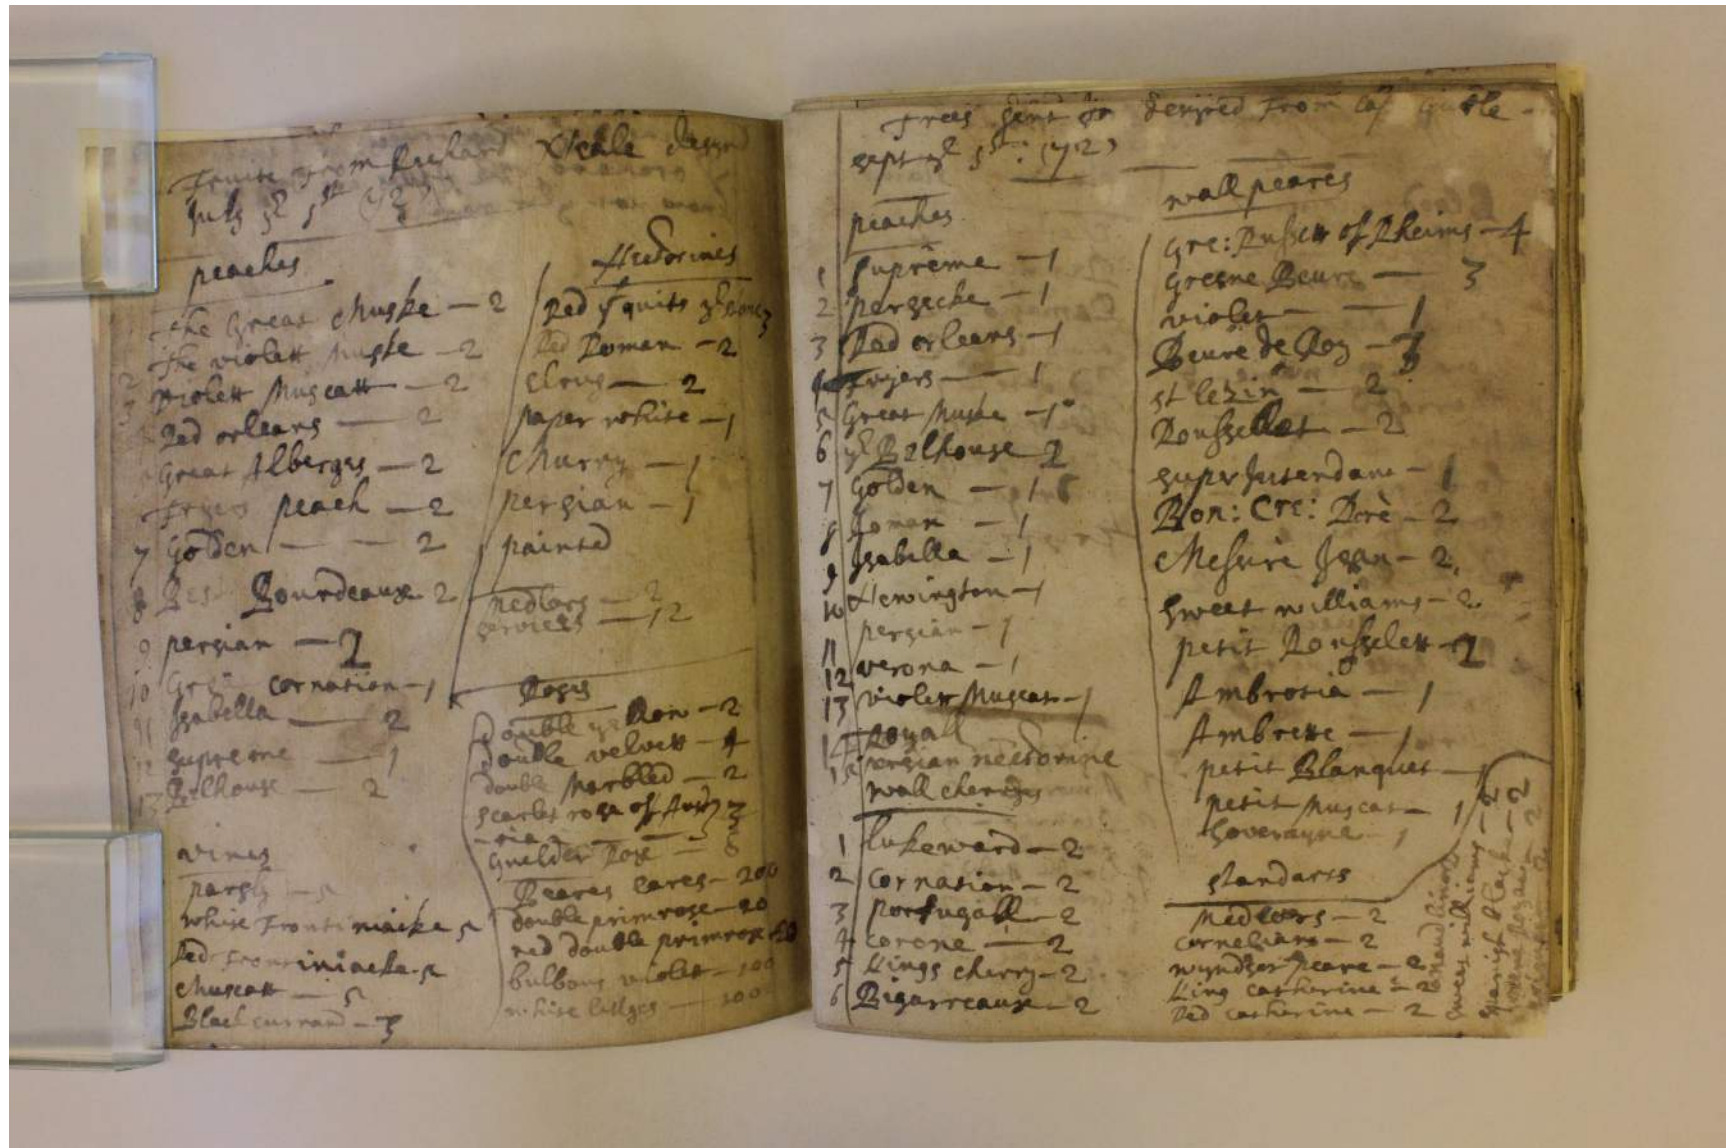 fruits from Richard desyred
July ye 5st (72)
peaches
the Great Muske — 2
the violett Muske — 2
violett Muscatt — 2
Red orleans — 2
Great Alberges — 2
peach — 2
7 Golden — — 2
8 Bourdeaux — 2
9 persian — 2
10 cornation — 1
11 Isabella — 2
12 supreme — 1
13 Belhouse — 2
vines
parsly — 5
white frontiniacke 5
Red frontiniacke 5
Muscatt — 5
Black currand — 3
Nectorines
Red
Red Roman — 2
2
paper white — 1
Murry — 1
persian — 1
painted
Medlars — 2
services — 12
Roses
Double yellow — 2
Double velvett — 4
double Marbled — 2
scarlet rose of Aust
- ria
Guelder Rose —
Beares eares — 200
double primrose — 20
red double primrose 20
bulbous violet — 100
white — 100
Trees sent for desyred from Cap
sept ye 5st: (72)
peaches
1 supreme — 1
2 persecke — 1
3 Red orleans — 1
4 — 1
5 Great Muske — 1
6 ye Belhouse 2
7 Golden — 1
8 Roman — 1
9 Isabella — 1
10 Newington — 1
11 persian — 1
12 verona — 1
13 violett Muscat — 1
14 Royall
15 persian nectorine
wall cherrys
1 lukeward — 2
2 cornation — 2
3 portugall — 2
4 corone — 2
5 Kings cherry — 2
6 Bigarreaux — 2
wall peares
Gre: Russett of Rheims — 4
Greene Beure — 3
violet — — 1
Beure de Roy —
st lezin — 2
Rousselet — 2
superintendant — 1
Bon: Cre: Dorè — 2
Messire Jean — 2
sweet williams — 2
petit Rousselett — 2
Ambrosia — 1
Ambrette — 1
petit Blanquet —
petit Muscat — 1
soverayne — 1
standarts
Medlors — 2
cornelians — 2
wyndsor peare — 2
King catherine — 2
Red catherine — 2
sweet williams — 2
spanish black — 2